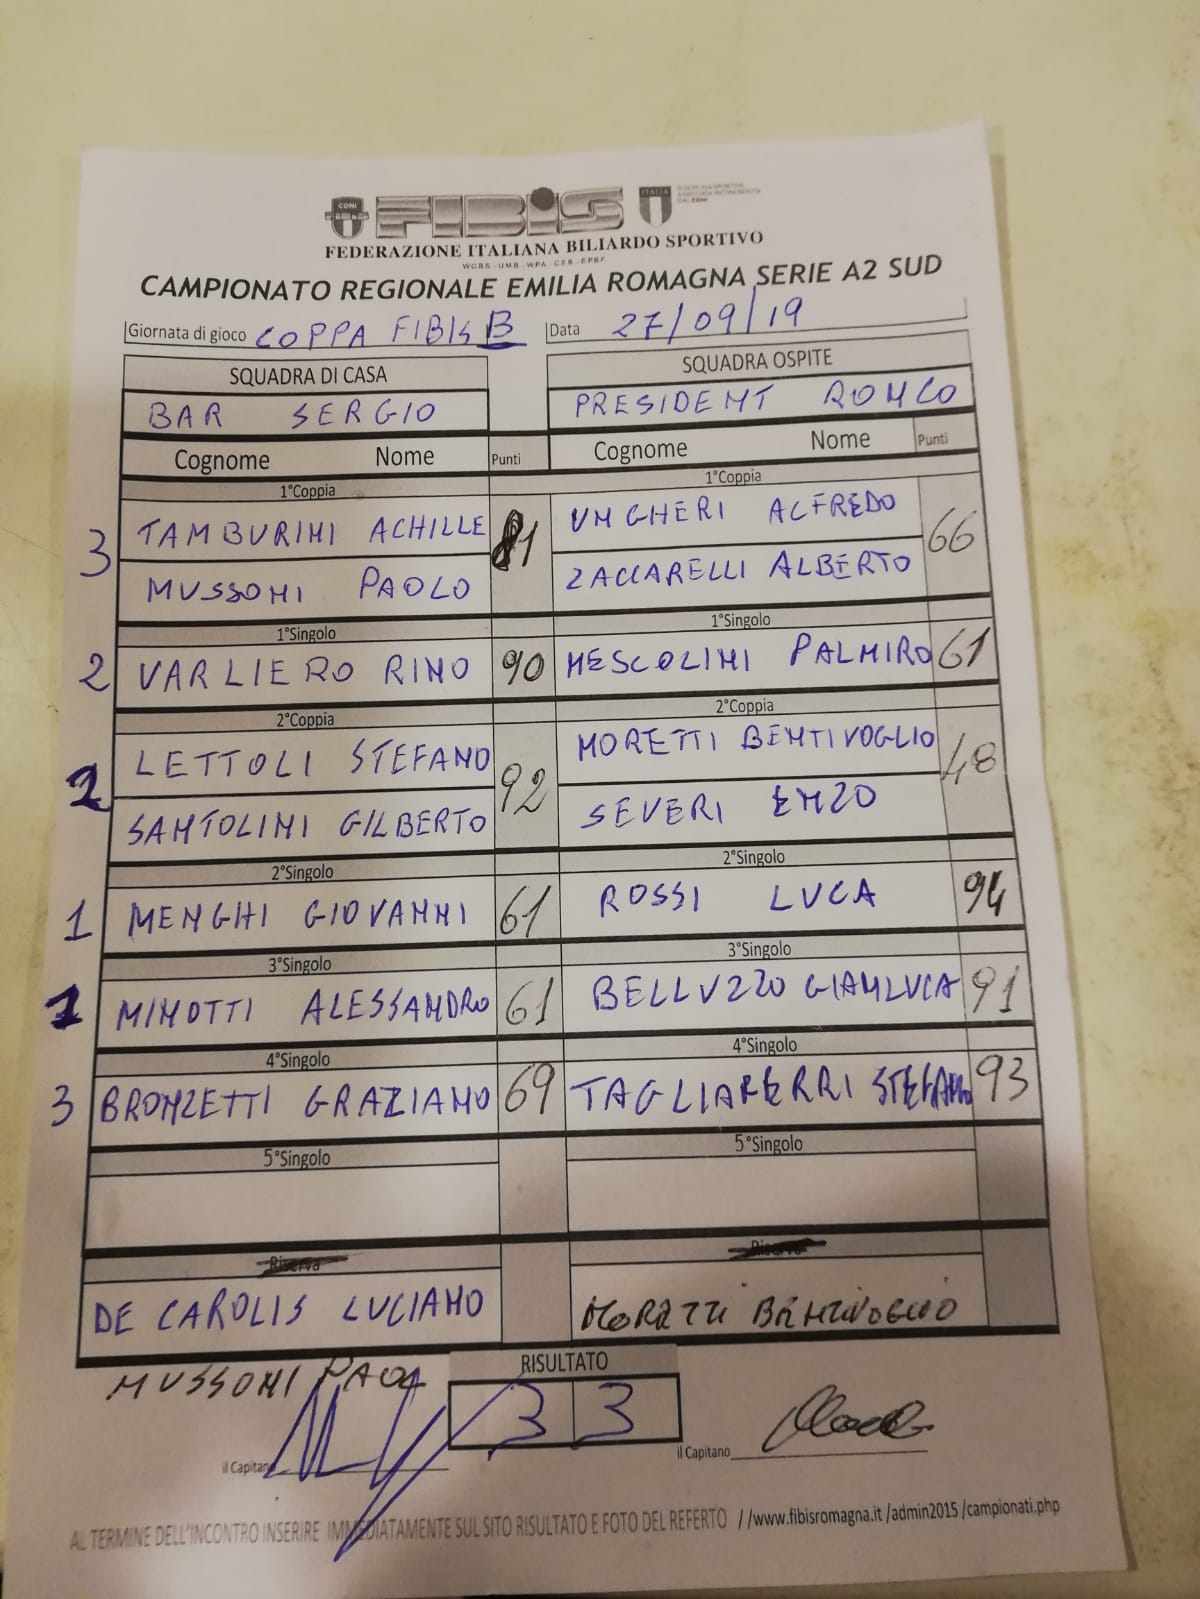 CONI
FIBiS
ITALIA
FEDERAZIONE ITALIANA BILIARDO SPORTIVO
WCBS - UMB - WPA - CEB - EPBF
CAMPIONATO REGIONALE EMILIA ROMAGNA SERIE A2 SUD
Giornata di gioco COPPA FIBIS B Data 27/09/19
SQUADRA DI CASA SQUADRA OSPITE
BAR SERGIO PRESIDENT RONCO
Cognome Nome Punti Cognome Nome Punti
1°Coppia 1°Coppia
3 TAMBURINI ACHILLE 81 UNGHERI ALFREDO 66
MUSSONI PAOLO ZACCARELLI ALBERTO
1°Singolo 1°Singolo
2 VARLIERO RINO 90 MESCOLINI PALMIRO 61
2°Coppia 2°Coppia
2 LETTOLI STEFANO 92 MORETTI BENTIVOGLIO 48
SANTOLINI GILBERTO SEVERI ENZO
2°Singolo 2°Singolo
1 MENGHI GIOVANNI 61 ROSSI LUCA 94
3°Singolo 3°Singolo
1 MINOTTI ALESSANDRO 61 BELLUZZO GIANLUCA 91
4°Singolo 4°Singolo
3 BRONZETTI GRAZIANO 69 TAGLIAFERRI STEFANO 93
5°Singolo 5°Singolo
Riserva Riserva
DE CAROLIS LUCIANO MORETTI BENTIVOGLIO
MUSSONI PAOL
RISULTATO
3 3
il Capitano il Capitano
AL TERMINE DELL'INCONTRO INSERIRE IMMEDIATAMENTE SUL SITO RISULTATO E FOTO DEL REFERTO //www.fibisromagna.it /admin2015 /campionati.php